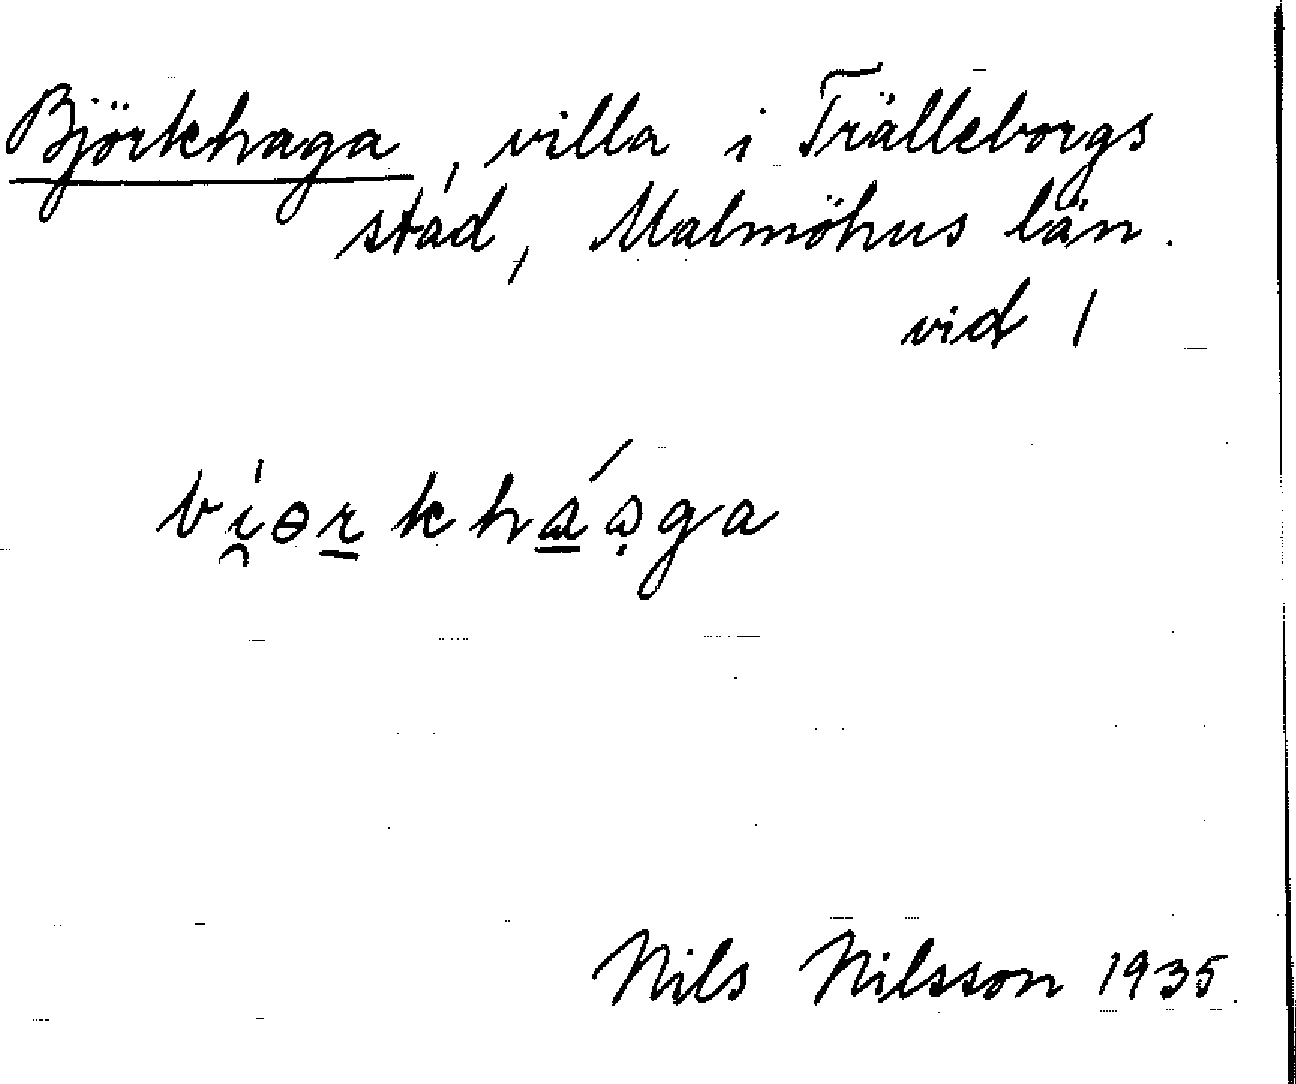 Björkhaga, villa i Trälleborgs
stad, Malmöhus län.
vid 1
bi̯ɵr̲kha̲ágạga
Nils Nilsson 1935.